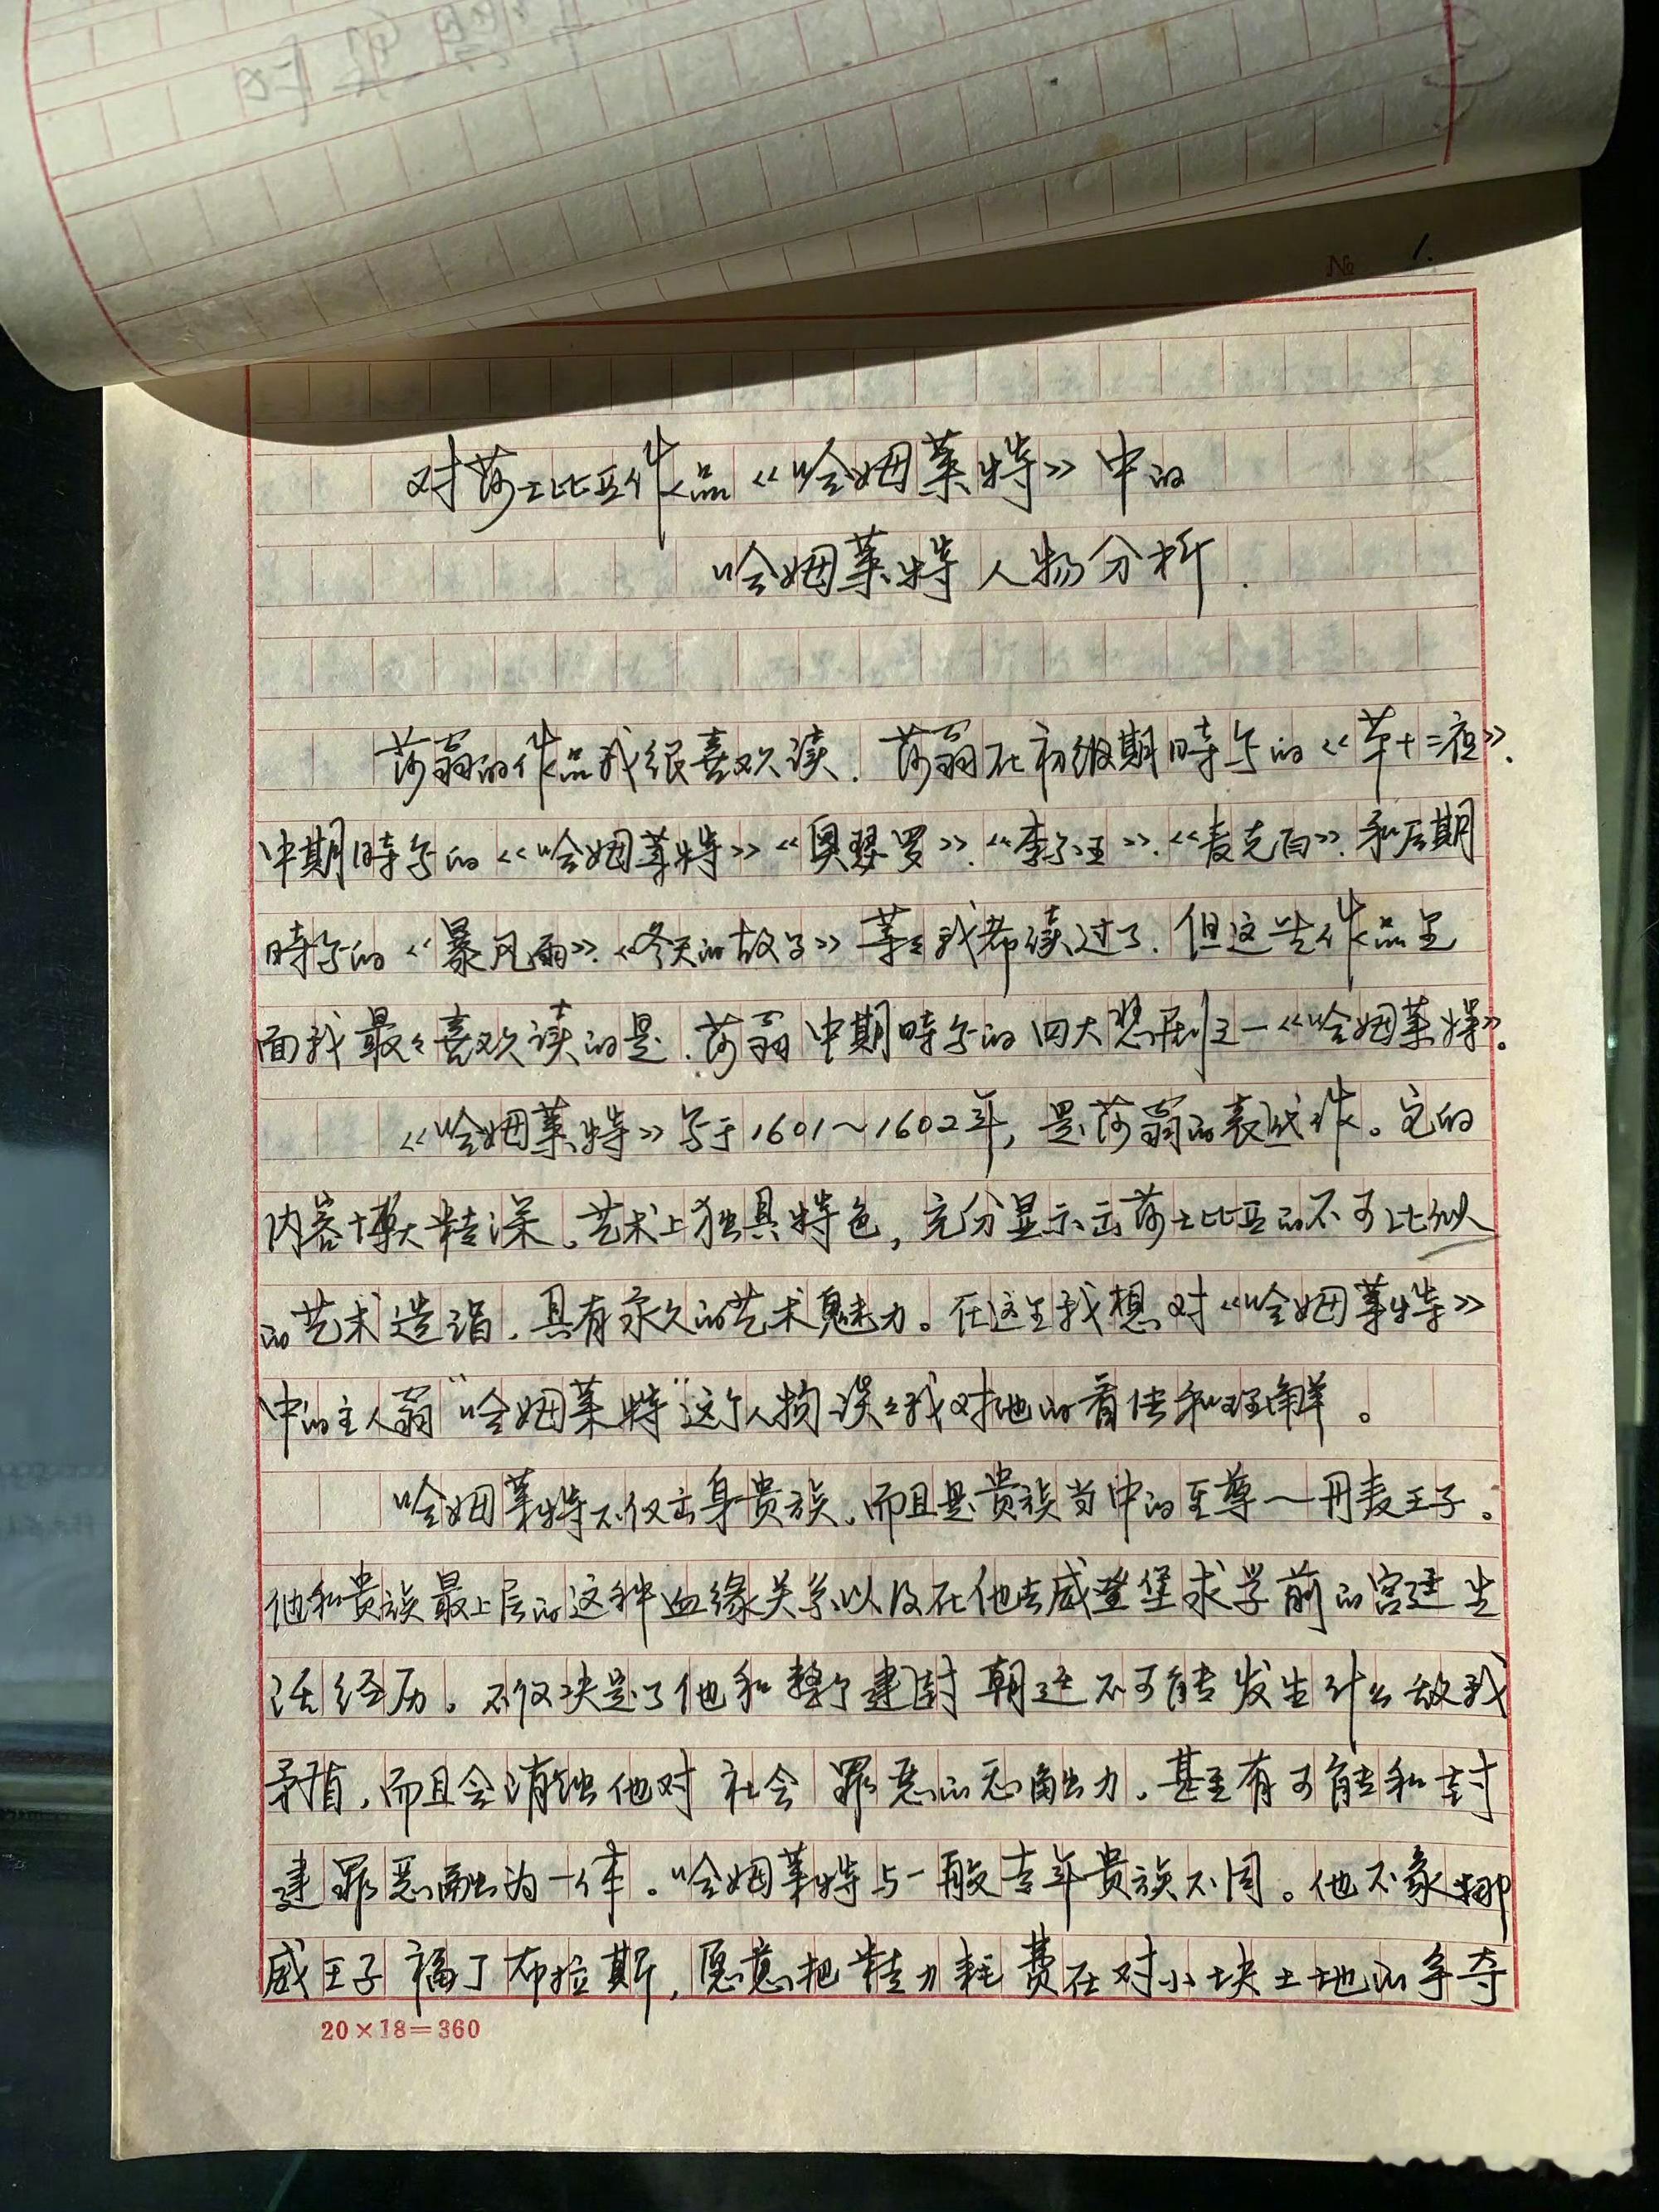 № 1.
对莎士比亚作品《哈姆莱特》中的
哈姆莱特人物分析.
莎翁的作品我很喜欢读. 莎翁在初级期时写的《第十二夜》.
中期时写的《哈姆莱特》《奥瑟罗》.《李尔王》.《麦克白》.和后期
时写的《暴风雨》.《冬天的故事》等等我都读过了.但这些作品里
面我最最喜欢读的是.莎翁中期时写的四大悲剧之一《哈姆莱特》。
《哈姆莱特》写于1601～1602年,是莎翁的代表作。它的
内容博大精深.艺术上独具特色,充分显示出莎士比亚的不可比拟
的艺术造诣.具有永久的艺术魅力。在这里我想对《哈姆莱特》
中的主人翁"哈姆莱特"这个人物谈谈我对他的看法和理解。
哈姆莱特不仅出身贵族.而且是贵族当中的至尊一丹麦王子。
他和贵族最上层的这种血缘关系以及在他去威登堡求学前的宫廷生
活经历。不仅决定了他和整个建封朝廷不可能发生什么敌我
矛盾.而且会消蚀他对社会罪恶的 力.甚至有可能和封
建罪恶融为一体。哈姆莱特与一般青年贵族不同。他不象挪
威王子福丁布拉斯,愿意把精力耗费在对小块土地的争夺
20×18=360